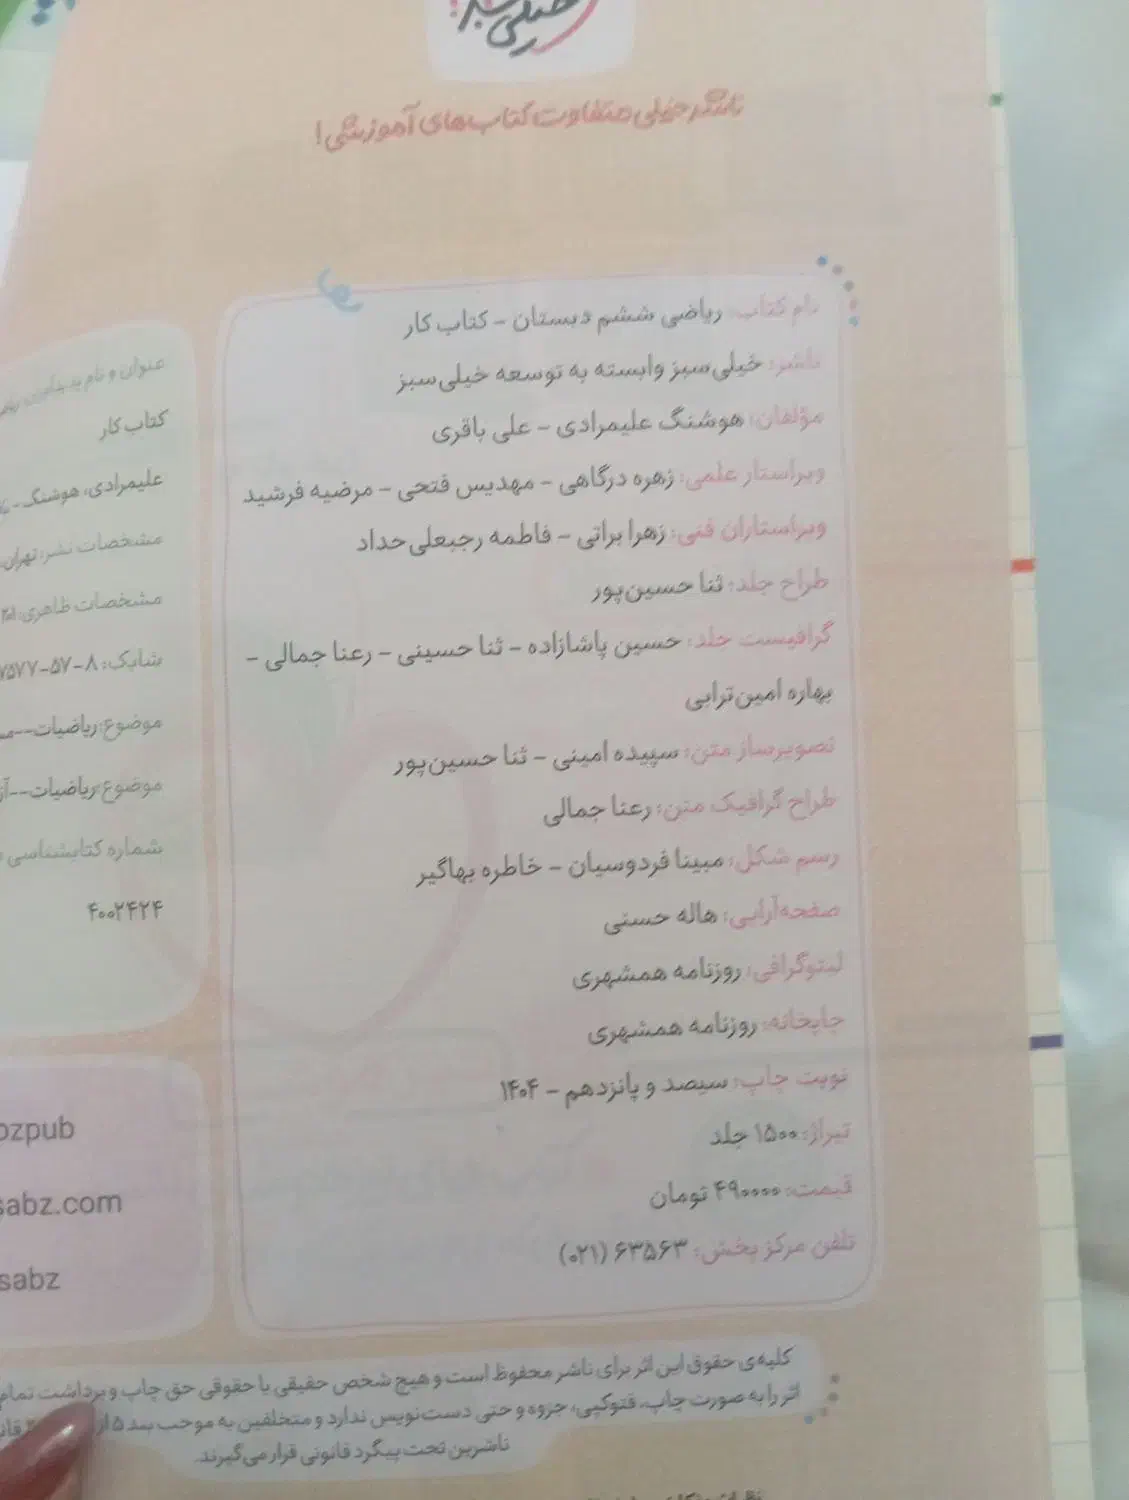 خیلی سبز
ناشر خیلی متفاوت کتاب‌های آموزشی!
نام کتاب: ریاضی ششم دبستان - کتاب کار
ناشر: خیلی‌سبز وابسته به توسعه خیلی‌سبز
مؤلفان: هوشنگ علیمرادی - علی باقری
ویراستار علمی: زهره درگاهی - مهدیس فتحی - مرضیه فرشید
ویراستاران فنی: زهرا براتی - فاطمه رجبعلی‌حداد
طراح جلد: ثنا حسین‌پور
گرافیست جلد: حسین پاشازاده - ثنا حسینی - رعنا جمالی -
بهاره امین‌ترابی
تصویرساز متن: سپیده امینی - ثنا حسین‌پور
طراح گرافیک متن: رعنا جمالی
رسم شکل: مبینا فردوسیان - خاطره بهاگیر
صفحه‌آرایی: هاله حسنی
لیتوگرافی: روزنامه همشهری
چاپخانه: روزنامه همشهری
نوبت چاپ: سیصد و پانزدهم - ۱۴۰۴
تیراژ: ۱۵۰۰ جلد
قیمت: ۴۹۰۰۰۰ تومان
تلفن مرکز پخش: ۶۳۵۶۳ (۰۲۱)
عنوان و نام پدیدآور:
کتاب کار
علیمرادی، هوشنگ-
مشخصات نشر: تهران،
مشخصات ظاهری:
شابک: ۸-۵۷-۷۵۷۷
موضوع: ریاضیات--
موضوع: ریاضیات--
شماره کتابشناسی
۴۰۰۲۴۲۴
ozpub
sabz.com
sabz
کلیه‌ی حقوق این اثر برای ناشر محفوظ است و هیچ شخص حقیقی یا حقوقی حق چاپ و برداشت تمام
اثر را به صورت چاپ، فتوکپی، جزوه و حتی دست‌نویس ندارد و متخلفین به موجب بند ۵ از
ناشرین تحت پیگرد قانونی قرار می‌گیرند.